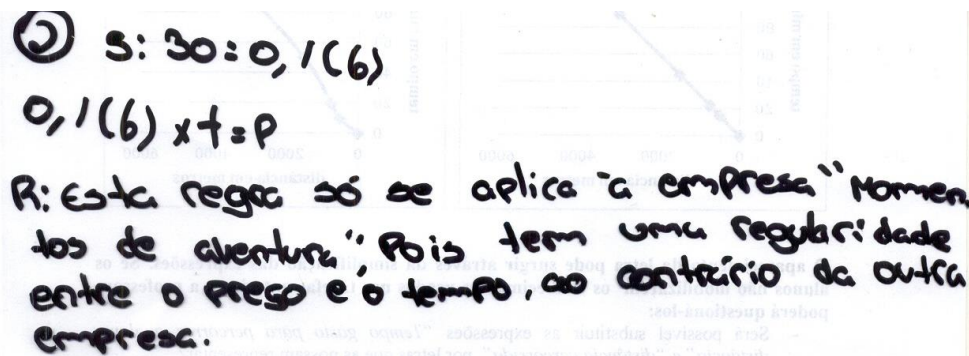 ② 5:30=0,1(6)
0,1(6) x t = P
R: Esta regra só se aplica à empresa "Momen
tos de aventura", Pois tem uma regularidade
entre o preço e o tempo, ao contrário da outra
empresa.